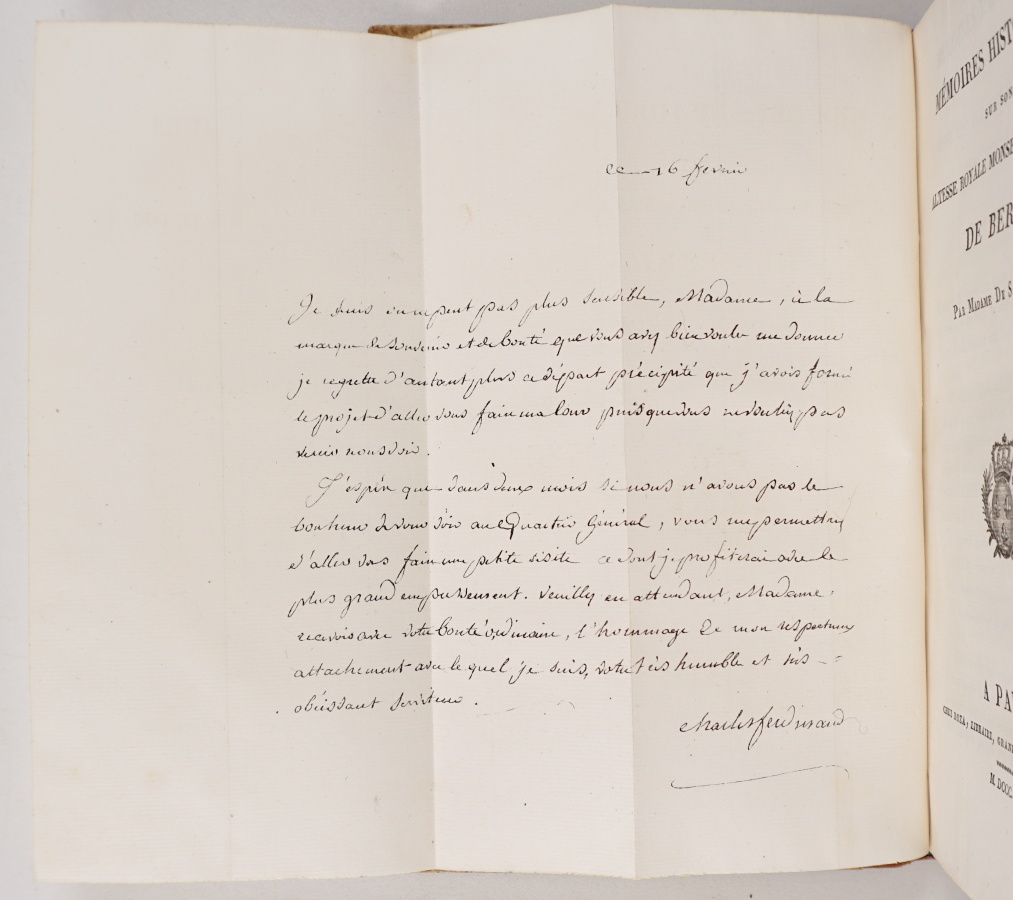 ce 16 fevrier
Je suis on ne peut pas plus sensible, Madame, à la
marque de souvenir et de bonté que vous avez bien voulu me donner
je regrette d'autant plus ce départ précipité que j'avois formé
le projet d'aller vous faire ma Cour puisque vous ne voulez pas
venir nous voir.
J'espère que dans deux mois si nous n'avons pas le
bonheur de vous voir au Quartier Général, vous me permettrez
d'aller vous faire une petite visite ce dont je profiterai avec le
plus grand empressement. Veuillez en attendant, Madame,
recevoir avec votre bonté ordinaire, l'hommage de mon respectueux
attachement avec lequel, je suis, votre très humble et très
obéissant serviteur.
Charles ferdinand
MÉMOIRES HIST
SUR SON
ALTESSE ROYALE MONSE
DE BER
PAR MADAME DE S
A PA
CHEZ ROZA, LIBRAIRE, GRAN
M DCCC